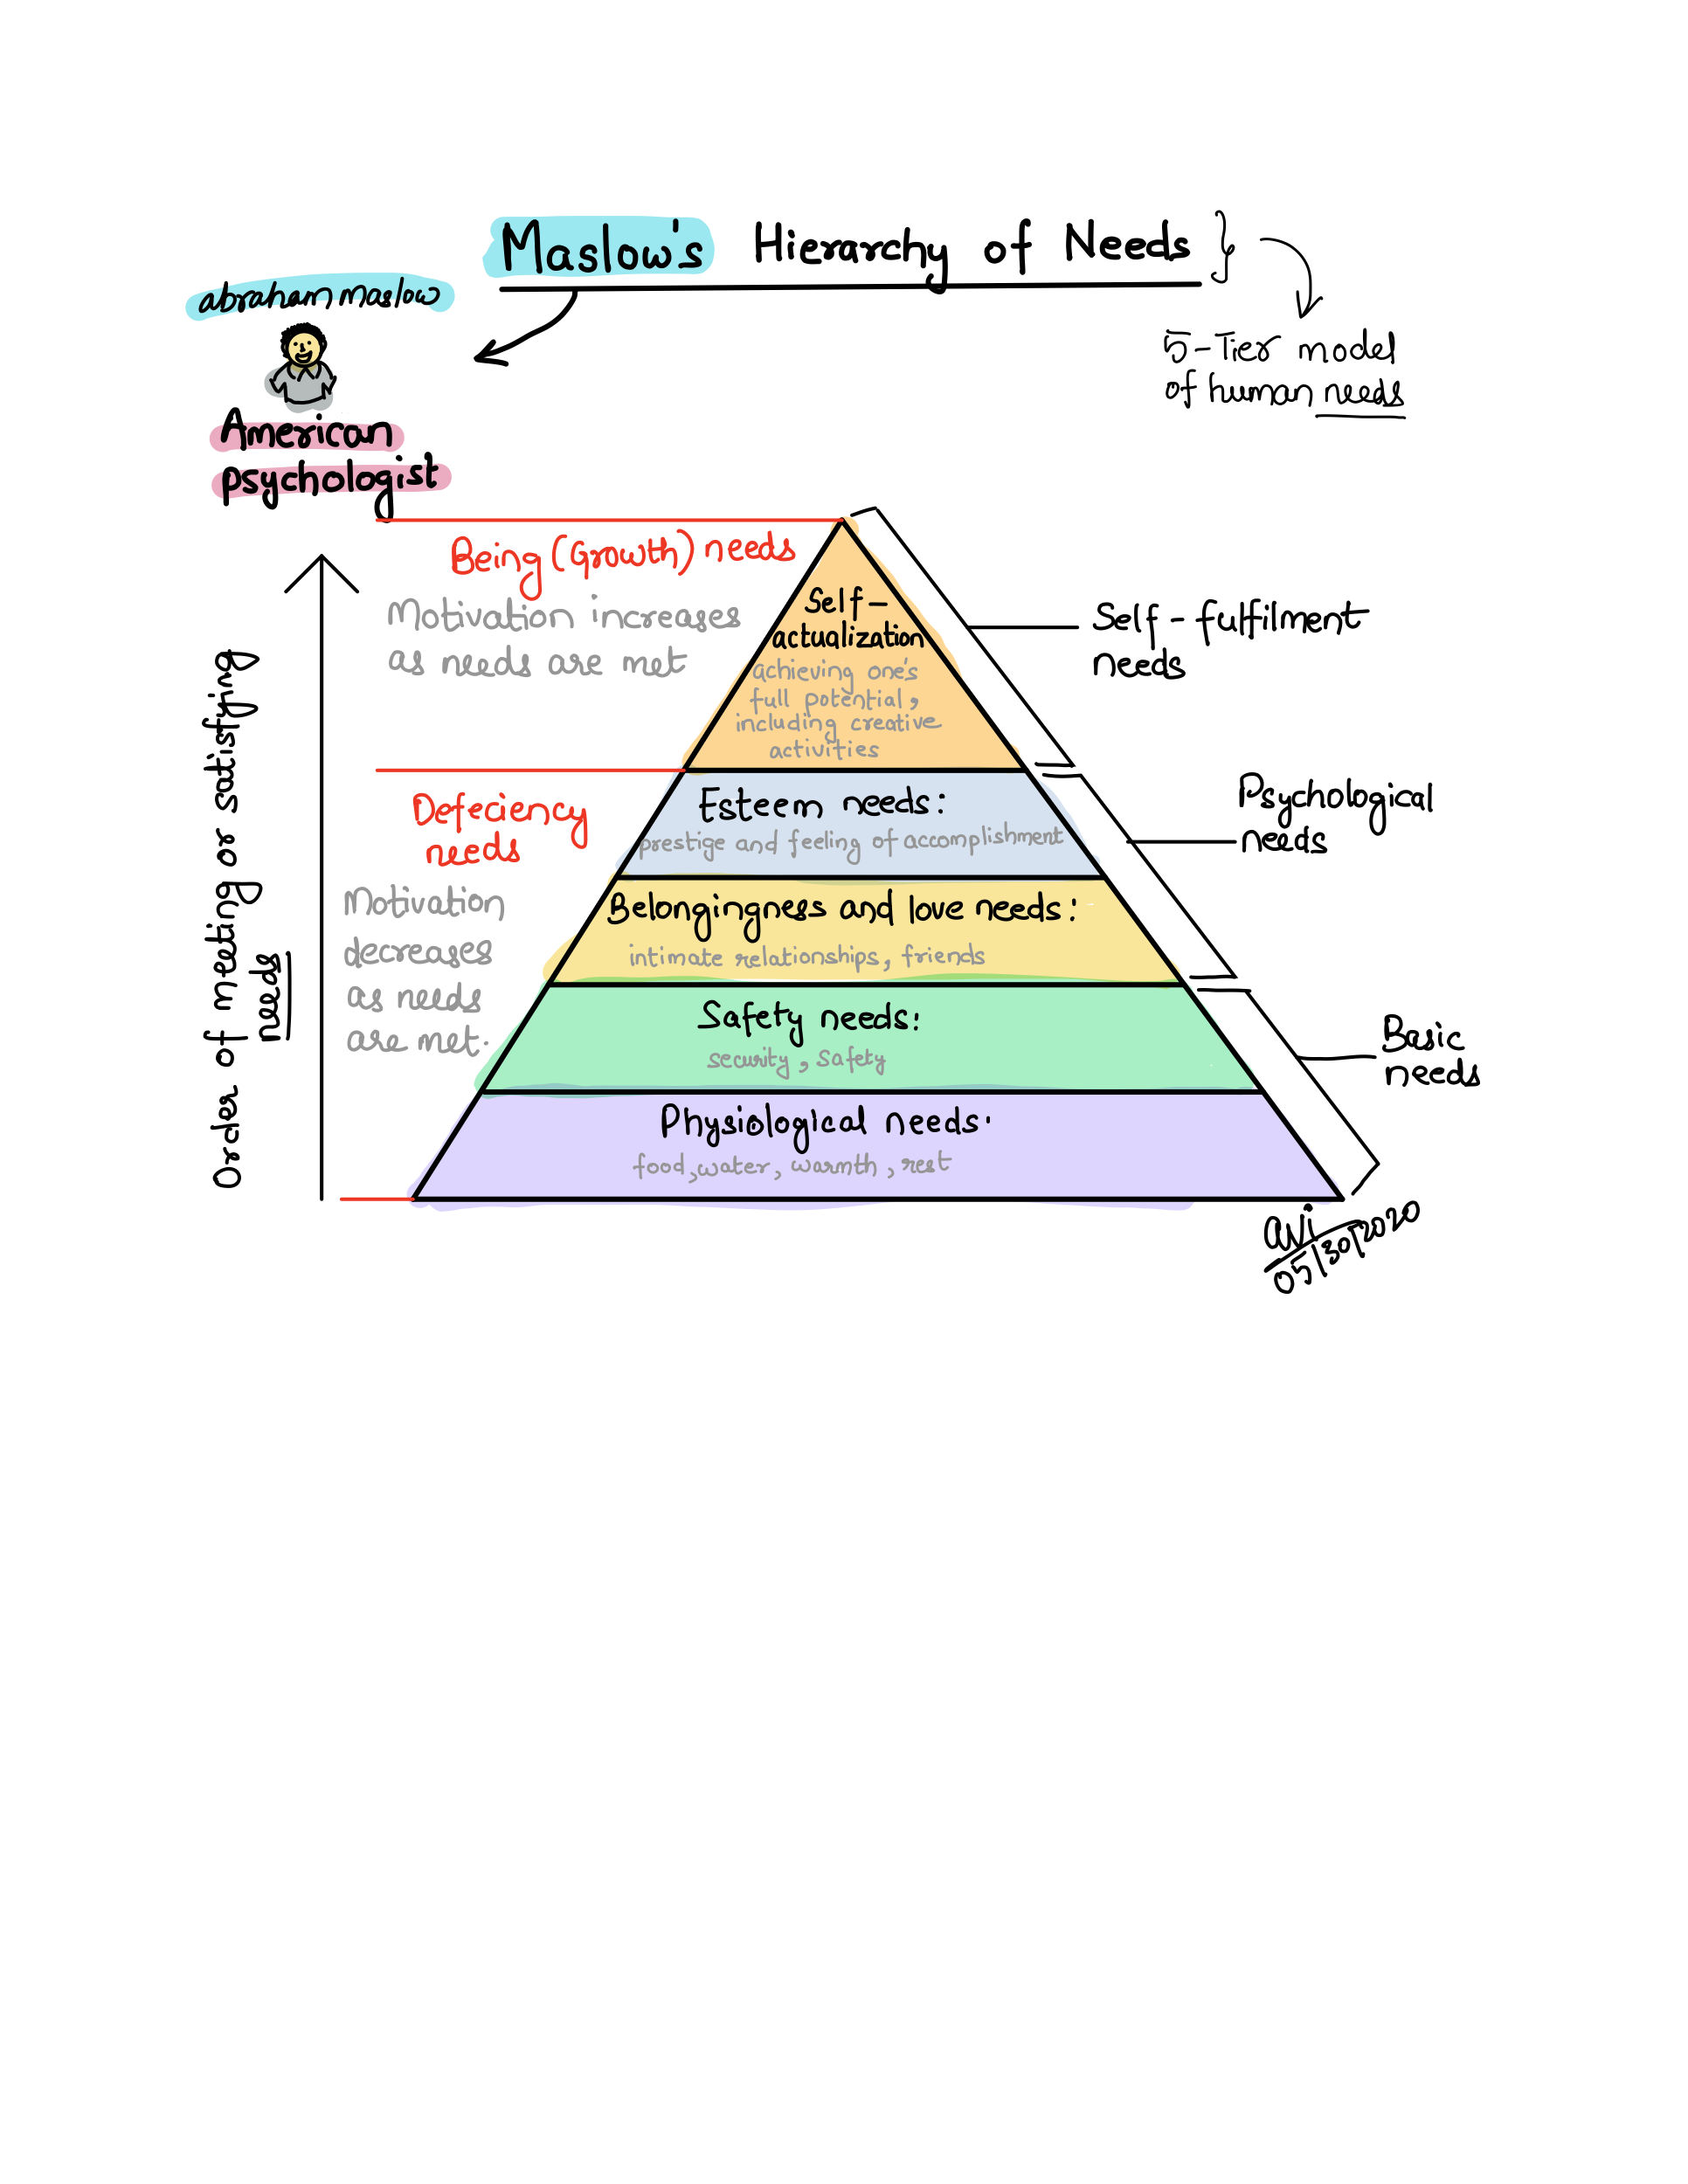 Maslow's Hierarchy of Needs }
abraham maslow
American
psychologist
5-Tier model
of human needs
Being (Growth) needs
Motivation increases
as needs are met
Defeciency
needs
Motivation
decreases
as needs
are met.
Order of meeting or satisfying
needs
Self-
actualization
achieving one's
full potential,
including creative
activities
Esteem needs:
prestige and feeling of accomplishment
Belongingness and love needs:
intimate relationships, friends
Safety needs:
security, safety
Physiological needs.
food, water, warmth, rest
Self-fulfilment
needs
Psychological
needs
Basic
needs
avi
05/30/2020